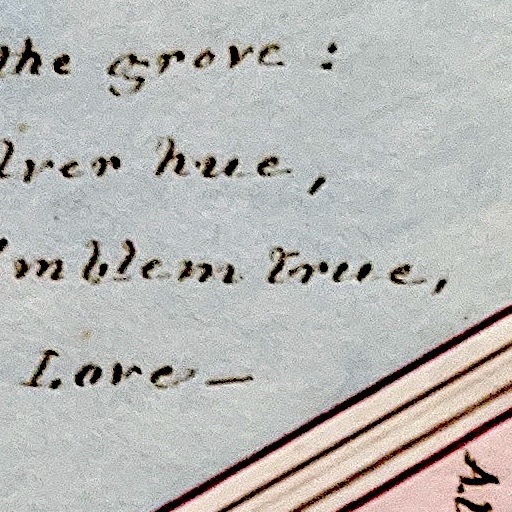 the grove :
lver hue,
Emblem true,
Love —